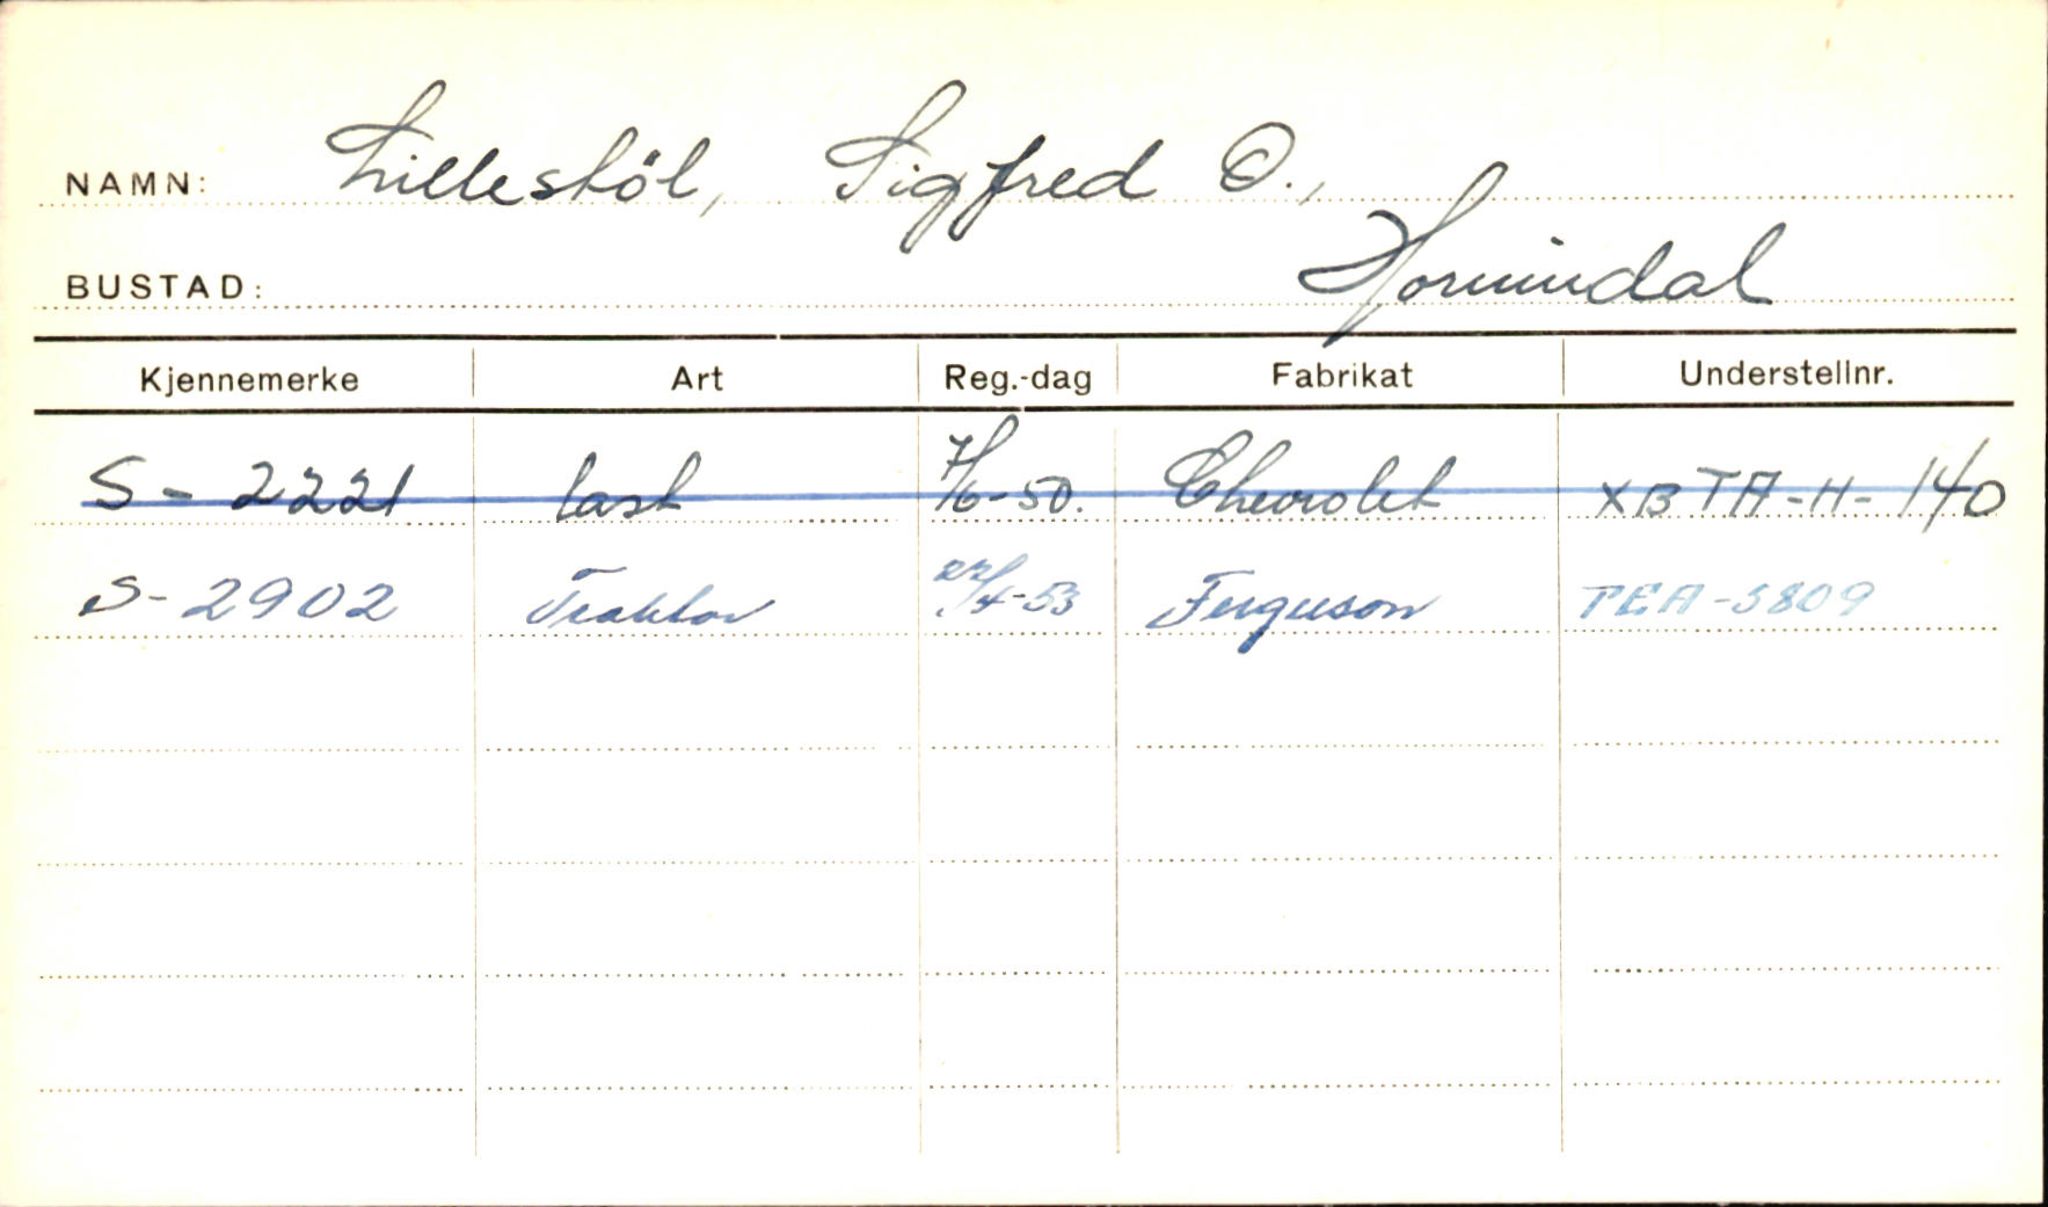 NAMN: Lillestöl, Sigfred O.,
BUSTAD: Hornindal
Kjennemerke Art Reg.-dag Fabrikat Understellnr.
S - 2221 last 7/6-50. Chevrolet XB TA-H-140
S- 2902 Traktor 22/4-53 Ferguson TEA-5809